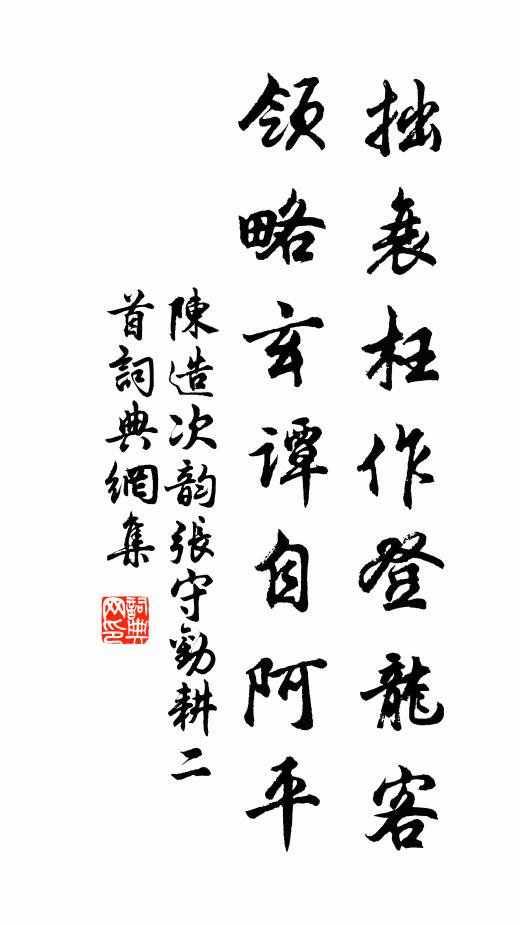 拙衰枉作登龍客
領略玄譚自阿平
陳造次韵張守勸耕二
首詞典網集
詞典
网印